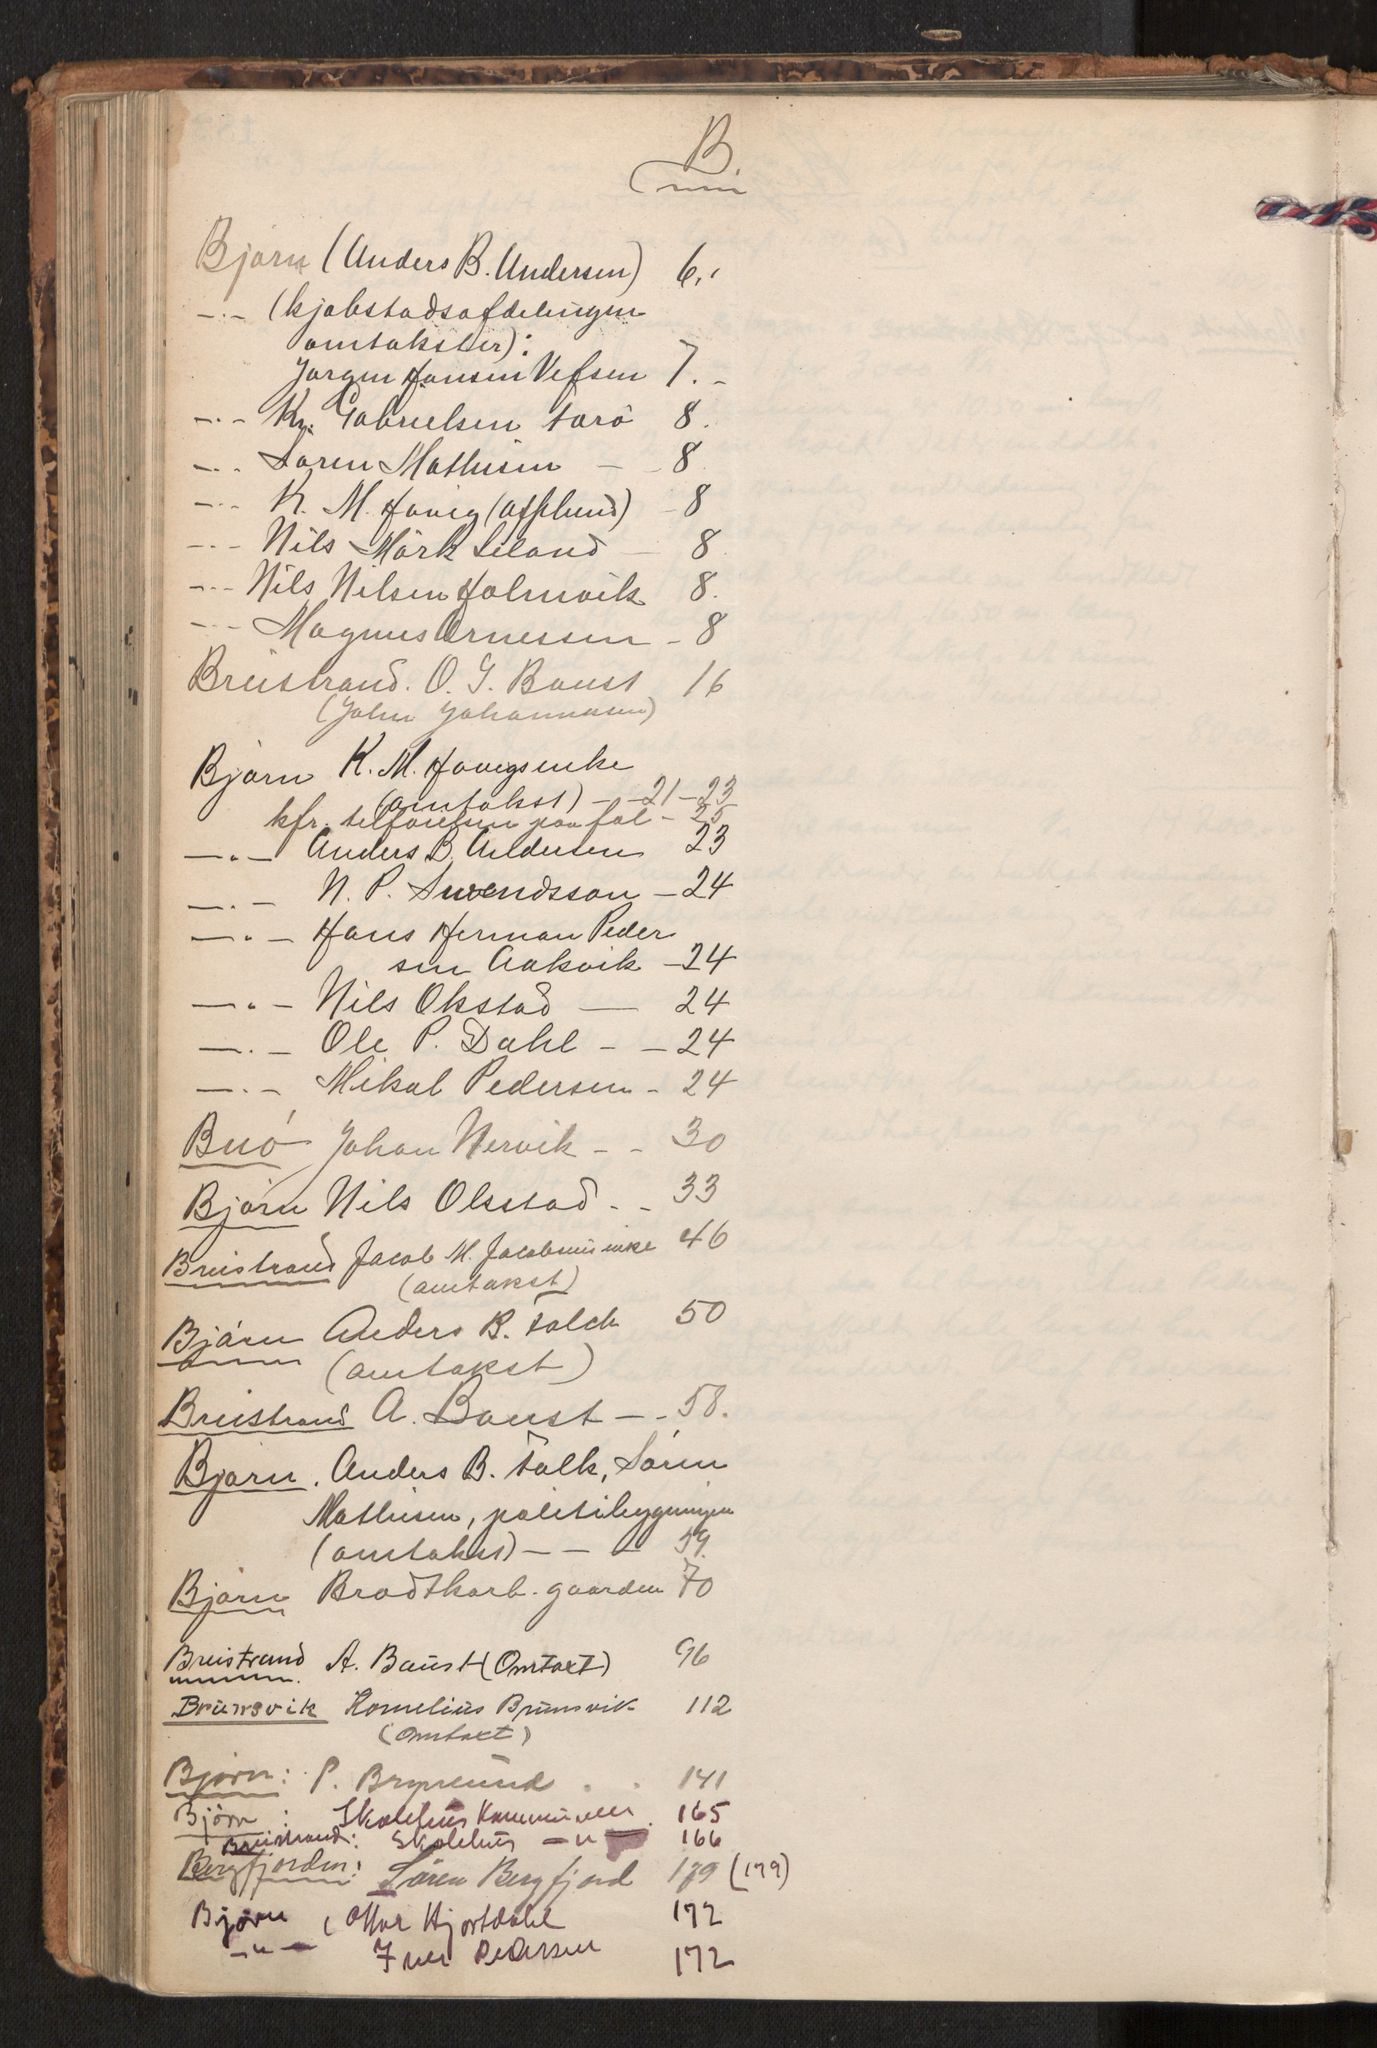 B.
Bjørn (Anders B. Andersen) 6.,
—.— (kjøbstadsafdelingen
omtakster):
Jørgen Hansen Vefsen 7. –
—.— Kr. Gabrielsen Tarø 8.
—.— Søren Mathisen — – 8
—.— K. M. Havig (Asplund) – 8
—.— Nils Mørk Leland — 8
—.— Nils Nilsen Holmvik 8.
—.— Magnus Arnessen – 8
Breistrand. O. J. Baust 16
(John Johannesen)
Bjørn K. M. Havigs enke
(omtakst) – – 21 – 23
kfr. tilføielsen paa fol – 25
—.— Anders B. Andersen 23
—.— N. P. Svendsson – 24
—.— Hans Herman Peder
sen Aakvik – 24
—.— Nils Olsstad — 24
—.— Ole P. Dahl – – 24
—.— Mikal Pedersen – 24
Buö Johan Nervik – – 30
Bjørn Nils Olsstad – – 33
Breistrand Jacob M. Jacobsens enke 46
(omtakst)
Bjørn Anders B. Falch 50
(omtakst)
Breistrand A. Baust – – 58.
Bjørn. Anders B. Falk, Søren
Mathisen, politibygningen
(omtakst) – – – 59.
Bjørn Brodtkorb. gaarden 70
Breistrand A. Baust (Omtaxt) 96
Brunsvik Kornelius Brunsvik 112
(Omtaxt)
Bjørn: P. Brynlund . . 141
Bjørn : Skolehus Kommunen 165
Breistrand: Skolehus – " — 166
Bergfjorden: Søren Bergfjord 179 (179)
Bjørn ( Ottar Hjortdahl 172
– " — Iver Pedersen 172